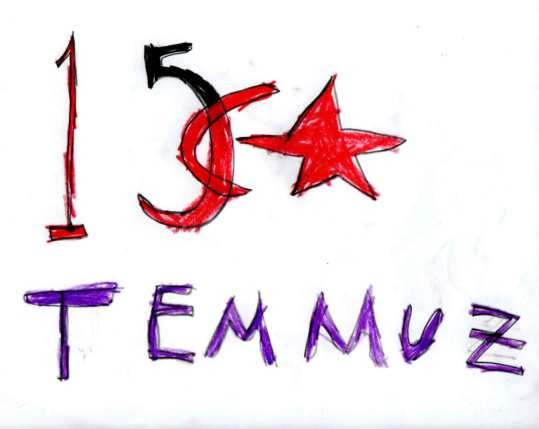 15
TEMMUZ